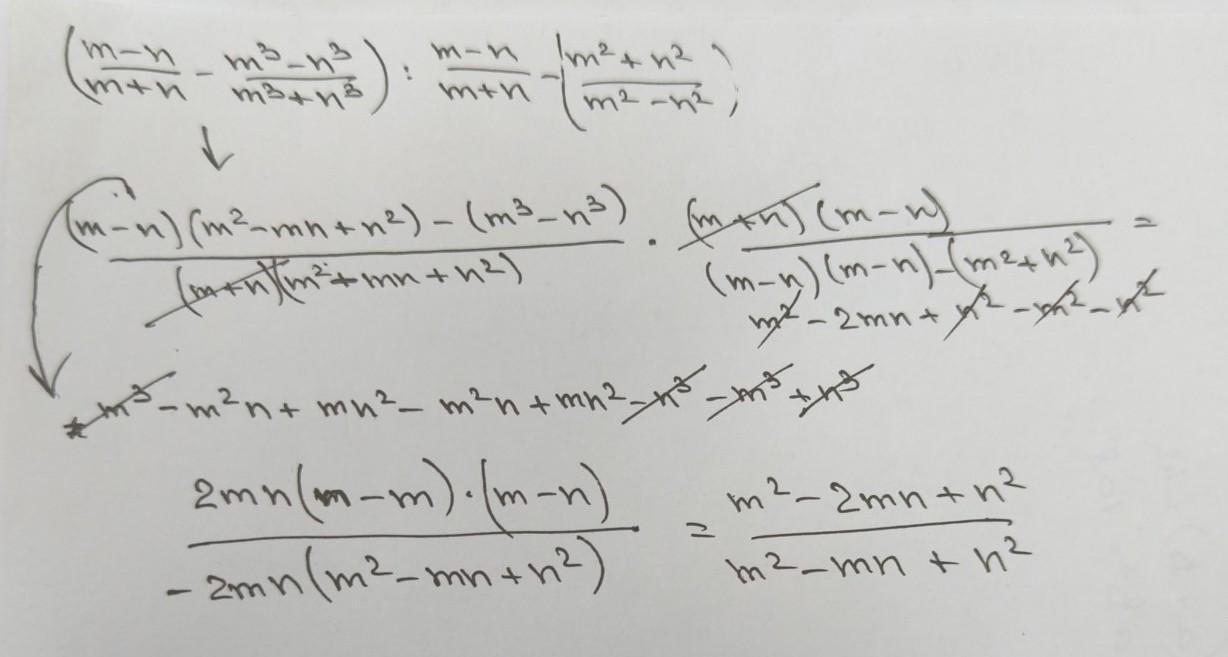 ((m-n)/(m+n) - (m³-n³)/(m³+n³)) : (m-n)/(m+n) - ((m²+n²)/(m²-n²))
↓
((m-n)(m²-mn+n²)-(m³-n³))/((m+n)(m²+mn+n²)) · ((m+n)(m-n))/((m-n)(m-n)-(m²+n²)) =
m²-2mn+n²-m²-n²
m³-m²n+mn²-m²n+mn²-n³-m³+n³
(2mn(m-m)·(m-n))/(-2mn(m²-mn+n²)) = (m²-2mn+n²)/(m²-mn+n²)